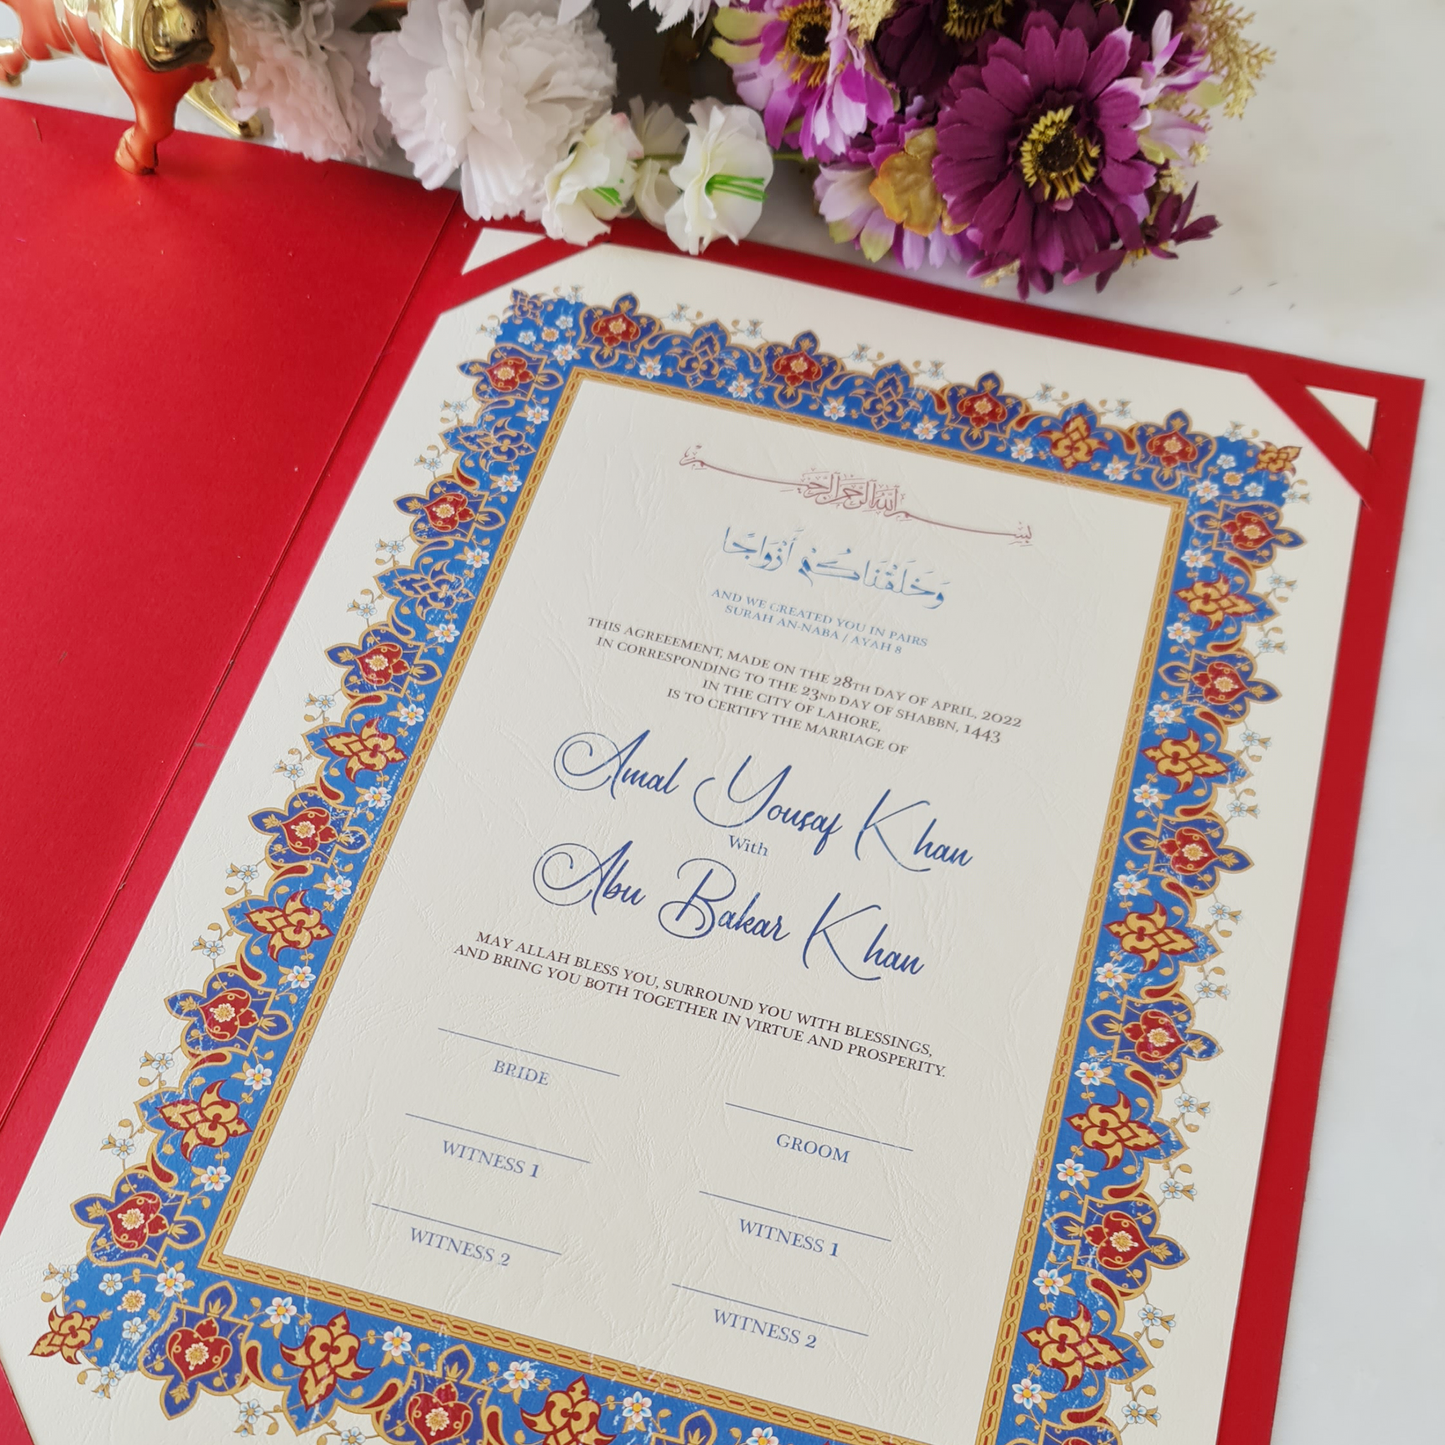 بسم الله الرحمن الرحيم
وَخَلَقْنَاكُمْ أَزْوَاجًا
AND WE CREATED YOU IN PAIRS
SURAH AN-NABA / AYAH 8
THIS AGREEEMENT, MADE ON THE 28TH DAY OF APRIL, 2022
IN CORRESPONDING TO THE 23ND DAY OF SHABBN, 1443
IN THE CITY OF LAHORE,
IS TO CERTIFY THE MARRIAGE OF
Amal Yousaf Khan
With
Abu Bakar Khan
MAY ALLAH BLESS YOU, SURROUND YOU WITH BLESSINGS,
AND BRING YOU BOTH TOGETHER IN VIRTUE AND PROSPERITY.
BRIDE
GROOM
WITNESS 1
WITNESS 1
WITNESS 2
WITNESS 2